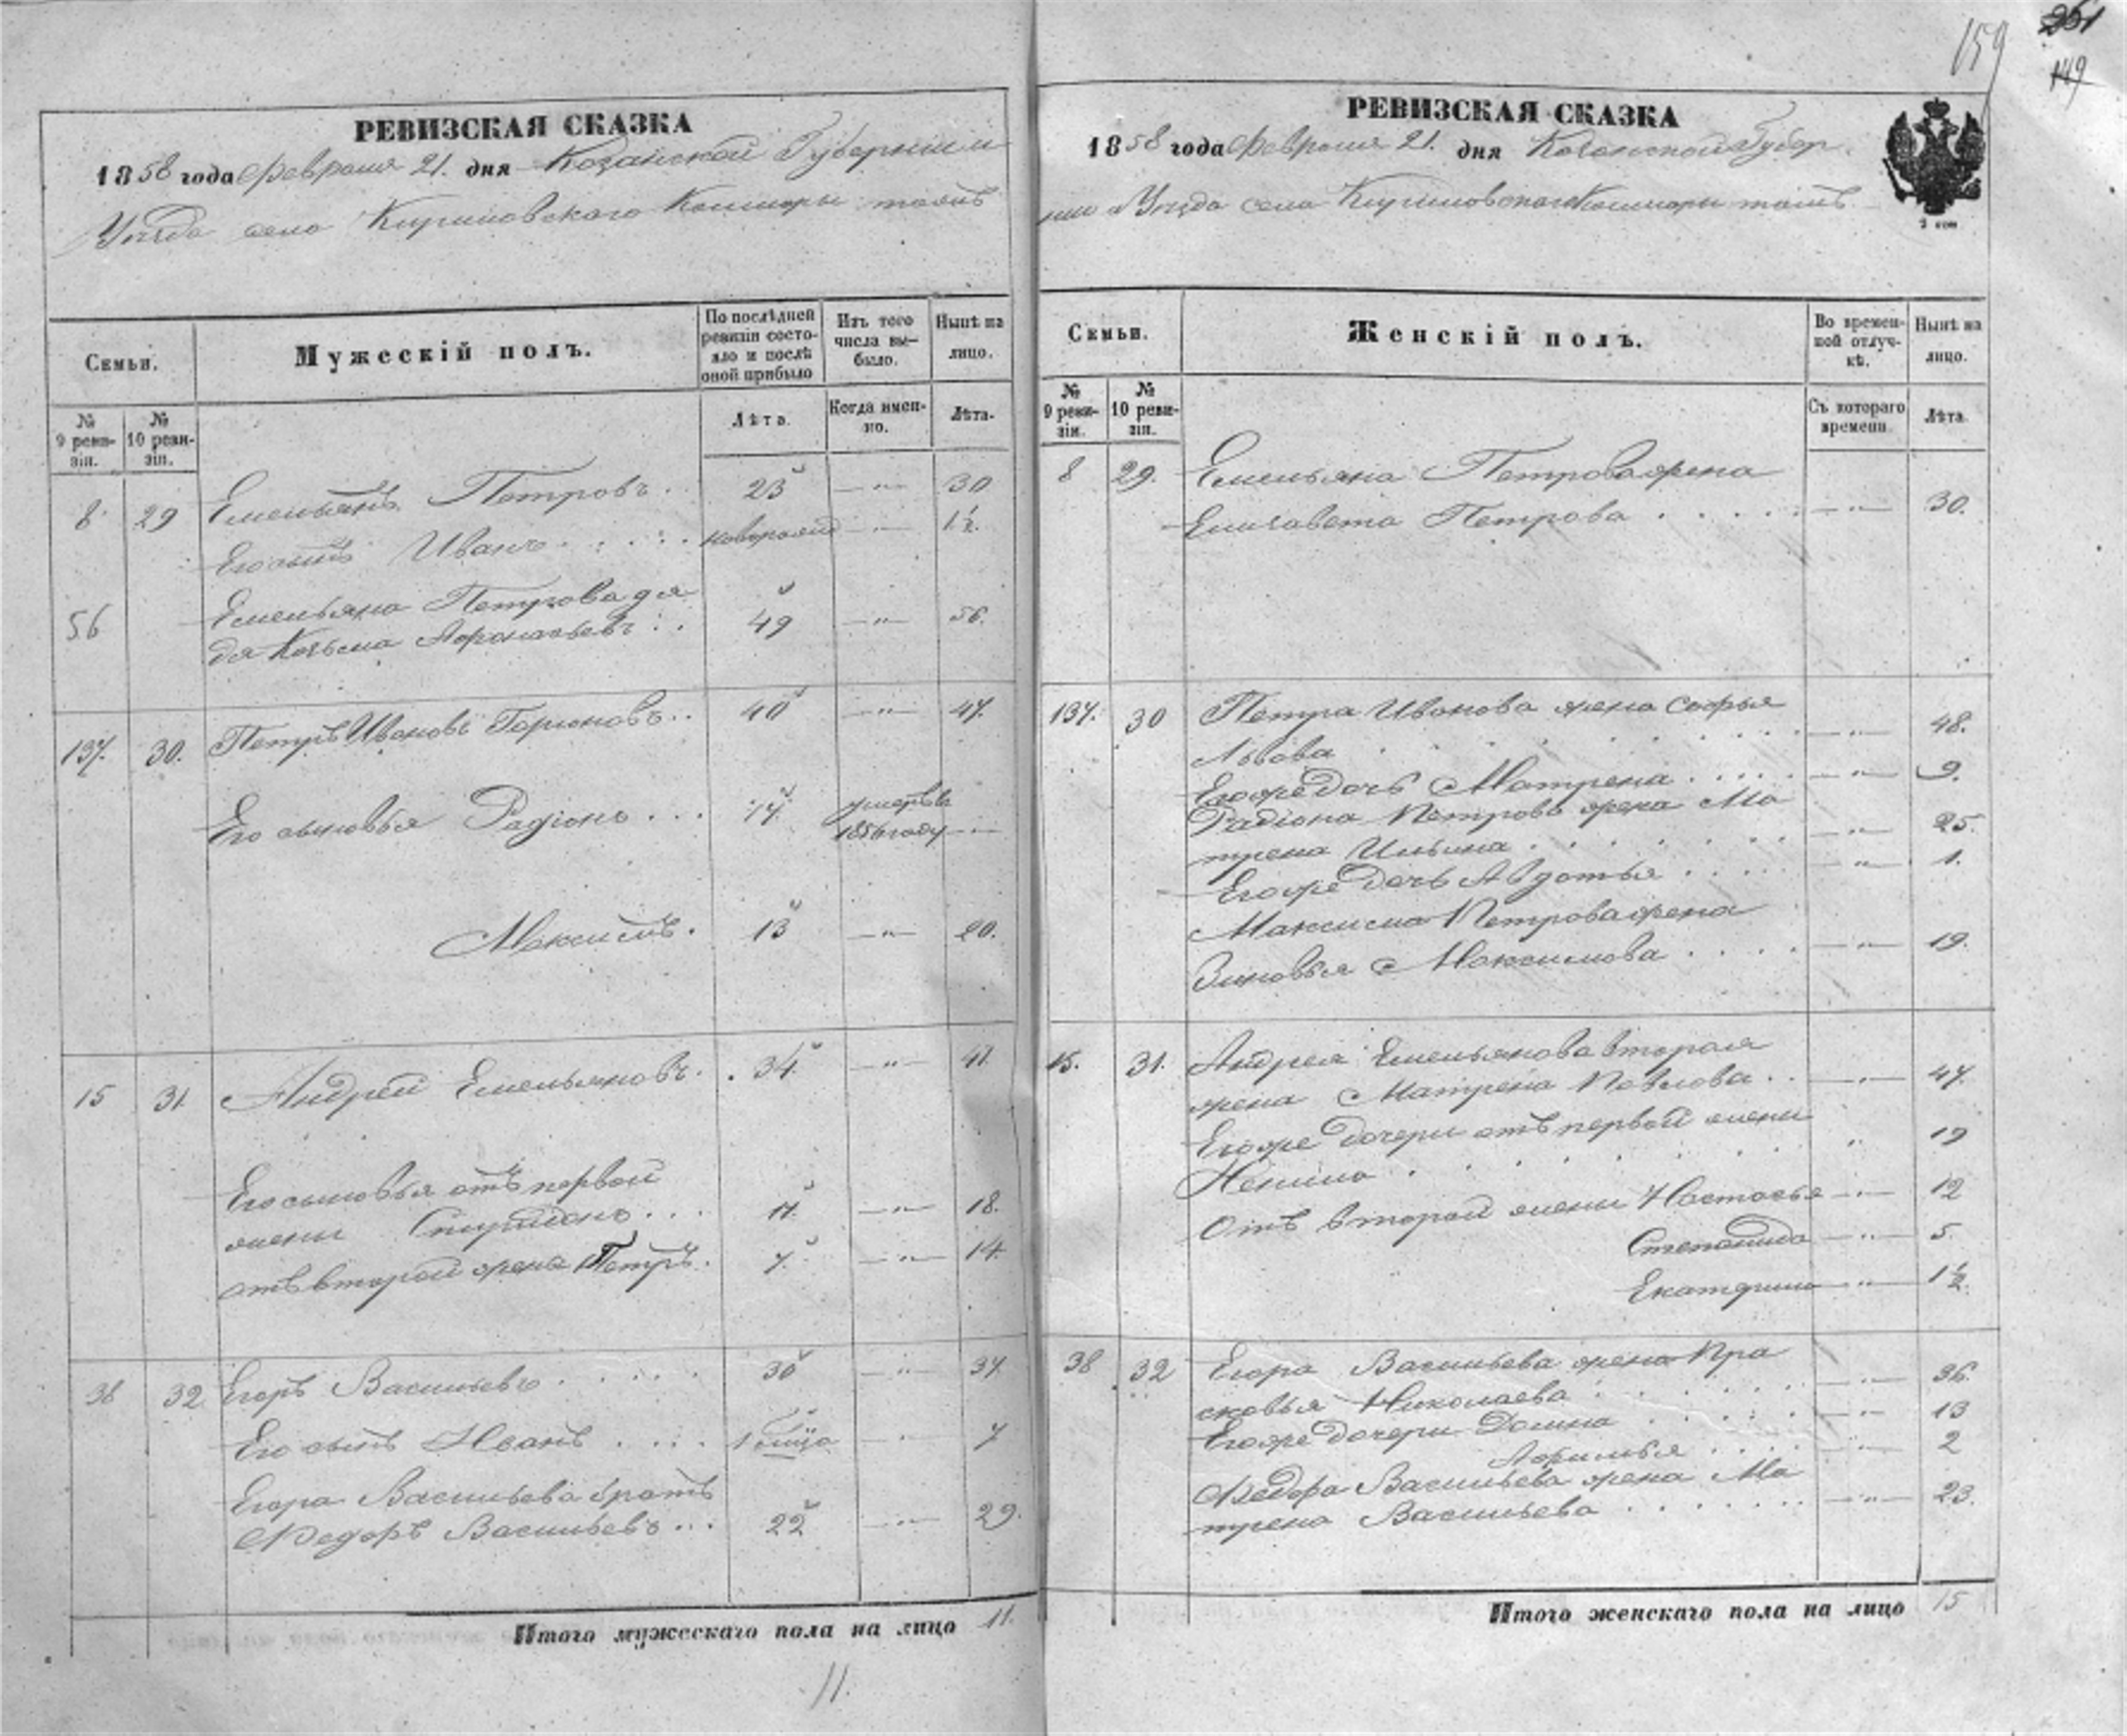 159
251
149
РЕВИЗСКАЯ СКАЗКА
1858 года Февраля 21. дня Казанской Губерніи и
Уѣзда села Кириловскаго Конторы тожъ
Семьи.
Мужескій полъ.
По послѣдней ревизіи состояло и послѣ оной прибыло
Изъ того числа выбыло.
Нынѣ на лицо.
№ 9 ревизіи.
№ 10 ревизіи.
Лѣта.
Когда именно.
Лѣта.
8 29 Емельянъ Петровъ . 23 — " — 30
Его сынъ Иванъ . . . . . новорожд — " — 1½.
56 Емельяна Петрова дя-
дя Козьма Афонасьевъ . . 49 — " — 56.
137. 30. Петръ Ивановъ Горюновъ . . 40 — " — 47.
Его сыновья Радіонъ . . . 17. умеръ въ
1856 году — " —
Максимъ. 13 — " — 20.
15 31. Андрей Емельяновъ . . 34. — " — 41.
Его сыновья отъ первой
жены Спиридонъ . . . 11. — " — 18.
отъ второй жены Петръ. 7. — " — 14.
38 32 Егоръ Васильевъ . . . . . 30 — " — 37.
Его сынъ Иванъ . . . . 1 — " — 7
Егора Васильева братъ
Федоръ Васильевъ . . . 22 — " — 29.
Итого мужескаго пола на лицо 11.
11.
РЕВИЗСКАЯ СКАЗКА
1858 года Февраля 21. дня Казанской Губер
ніи Уѣзда села Кириловскаго Конторы тожъ
Семьи.
Женскій полъ.
Во временной отлучкѣ.
Нынѣ на лицо.
№ 9 ревизіи.
№ 10 ревизіи.
Съ котораго времени.
Лѣта.
8 29. Емельяна Петрова жена
Елизавета Петрова . . . . . — " — 30.
137. 30 Петра Иванова жена Софья
Львова . . . . . . . — " — 48.
Его же дочь Матрена . . . . . — " — 9.
Радіона Петрова жена Ма
трена Ильина . . . . . . . — " — 25.
Его же дочь Авдотья . . . . . — " — 1.
Максима Петрова жена
Зиновья Максимова . . . . — " — 19.
15. 31. Андрея Емельянова вторая
жена Матрена Павлова . . — " — 47.
Его же дочери отъ первой жены
Ненила . . . . . . . " 19
Отъ второй жены Настасья — " — 12
Степанида — " — 5.
Екатерина — " — 1½.
38 32 Егора Васильева жена Пра
сковья Николаева . . . . . . — " — 36.
Его же дочери Домна . . . . . — " — 13
Афимья . . . . — " — 2
Федора Васильева жена Ма
трена Васильева . . . . . . . — " — 23.
Итого женскаго пола на лицо 15